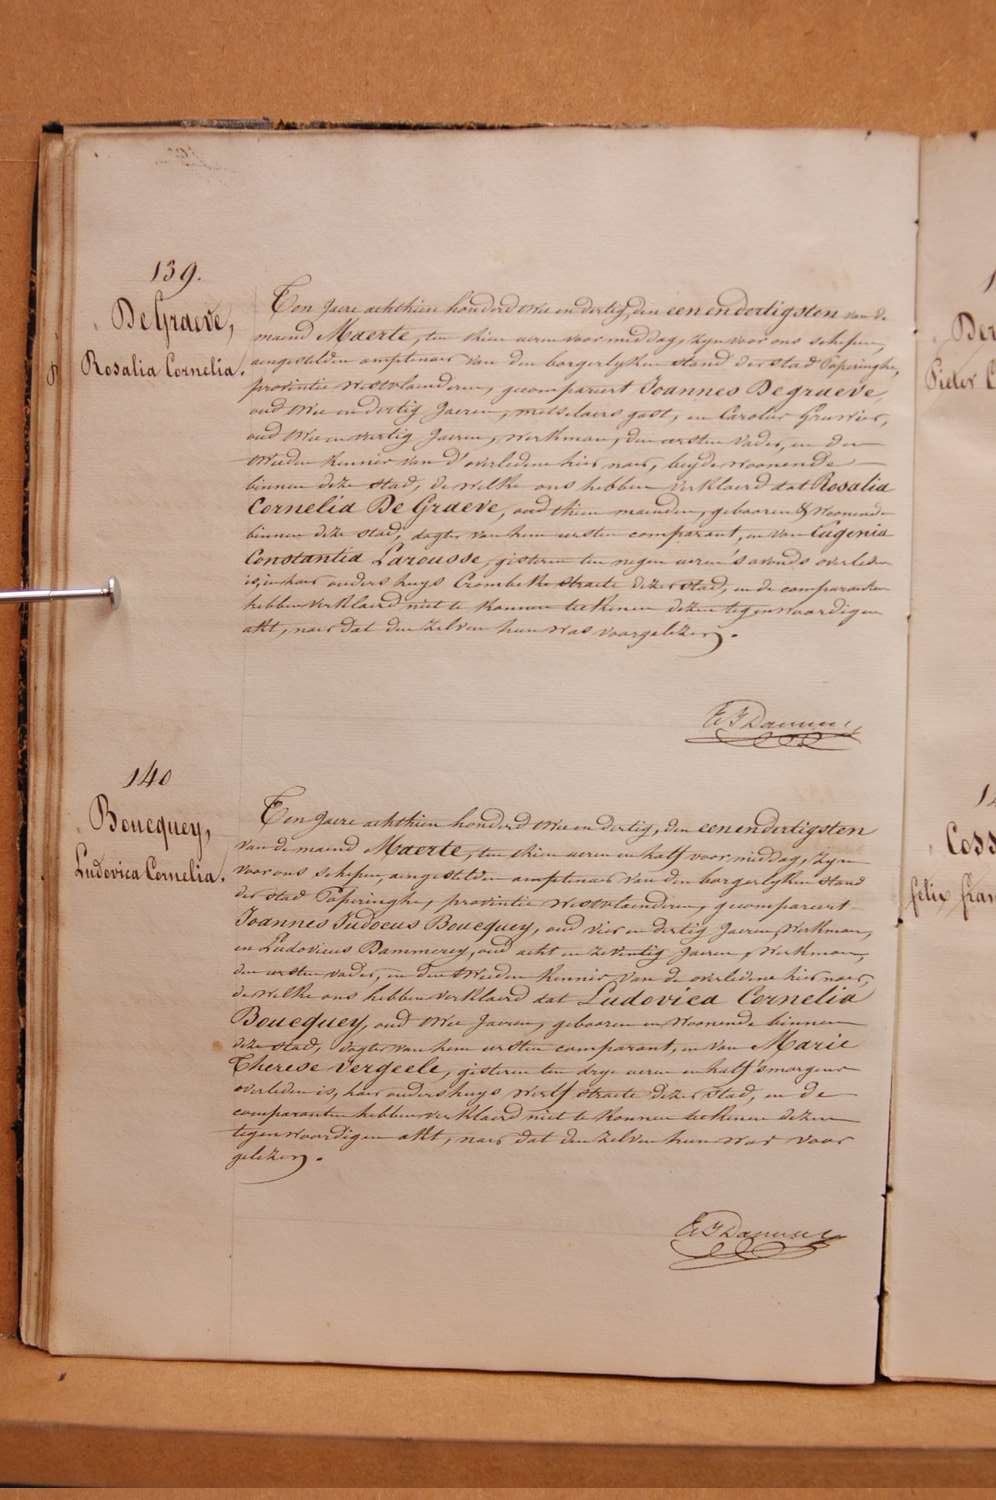 139.
De Graeve,
Rosalia Cornelia.
Ten Jaere achthien honderd twee en dertig, den een en dertigsten van de
maend Maerte, ten thien ueren voor middag, zyn voor ons schepen,
aengestelden amptenaer van den borgerlyken stand der stad Poperinghe,
provintie Westvlaenderen, gecompareert Joannes Degraeve,
oud twee en dertig Jaeren, metselaers gast, en Carolus Gruwier,
oud twee en veertig Jaeren, werkman, den eersten vader, en den
tweeden kennis van d'overledene hier naer, beyde woonende
binnen deze stad, de welke ons hebben verklaerd dat Rosalia
Cornelia De Graeve, oud thien maenden, gebooren & woonende
binnen deze stad, dogter van hem eersten comparant, en van Eugenia
Constantia Larousse, gisteren ten negen ueren 's avonds overleden
is, in haer ouders huys Crombeke straete dezer stad, en de comparanten
hebben verklaerd niet te konnen teekenen dezen tegenwoordigen
akt, naer dat den zelven hun was voorgelezen.
140
Boucquey,
Ludovica Cornelia.
Ten Jaere achthien honderd twee en dertig, den een en dertigsten
van de maend Maerte, ten thien ueren en half voor middag, zyn
voor ons schepen, aengestelden amptenaer van den borgerlyken stand
der stad Poperinghe, provintie Westvlaenderen, gecompareert
Joannes Judocus Boucquey, oud vier en dertig Jaeren, werkman,
en Ludovicus Dammerey, oud acht en zeventig Jaeren, werkman,
den eersten vader, en den tweeden kennis van de overledene hier naer,
de welke ons hebben verklaerd dat Ludovica Cornelia
Boucquey, oud twee Jaeren, gebooren en woonende binnen
deze stad, dogter van hem eersten comparant, en van Marie
Therese Vergeele, gisteren ten drye ueren en half 's morgens
overleden is, haer ouders huys Werf straete dezer stad, en de
comparanten hebben verklaerd niet te konnen teekenen dezen
tegenwoordigen akt, naer dat den zelven hun was voor
gelezen.
Der
Pieter C
Coss
felix fran